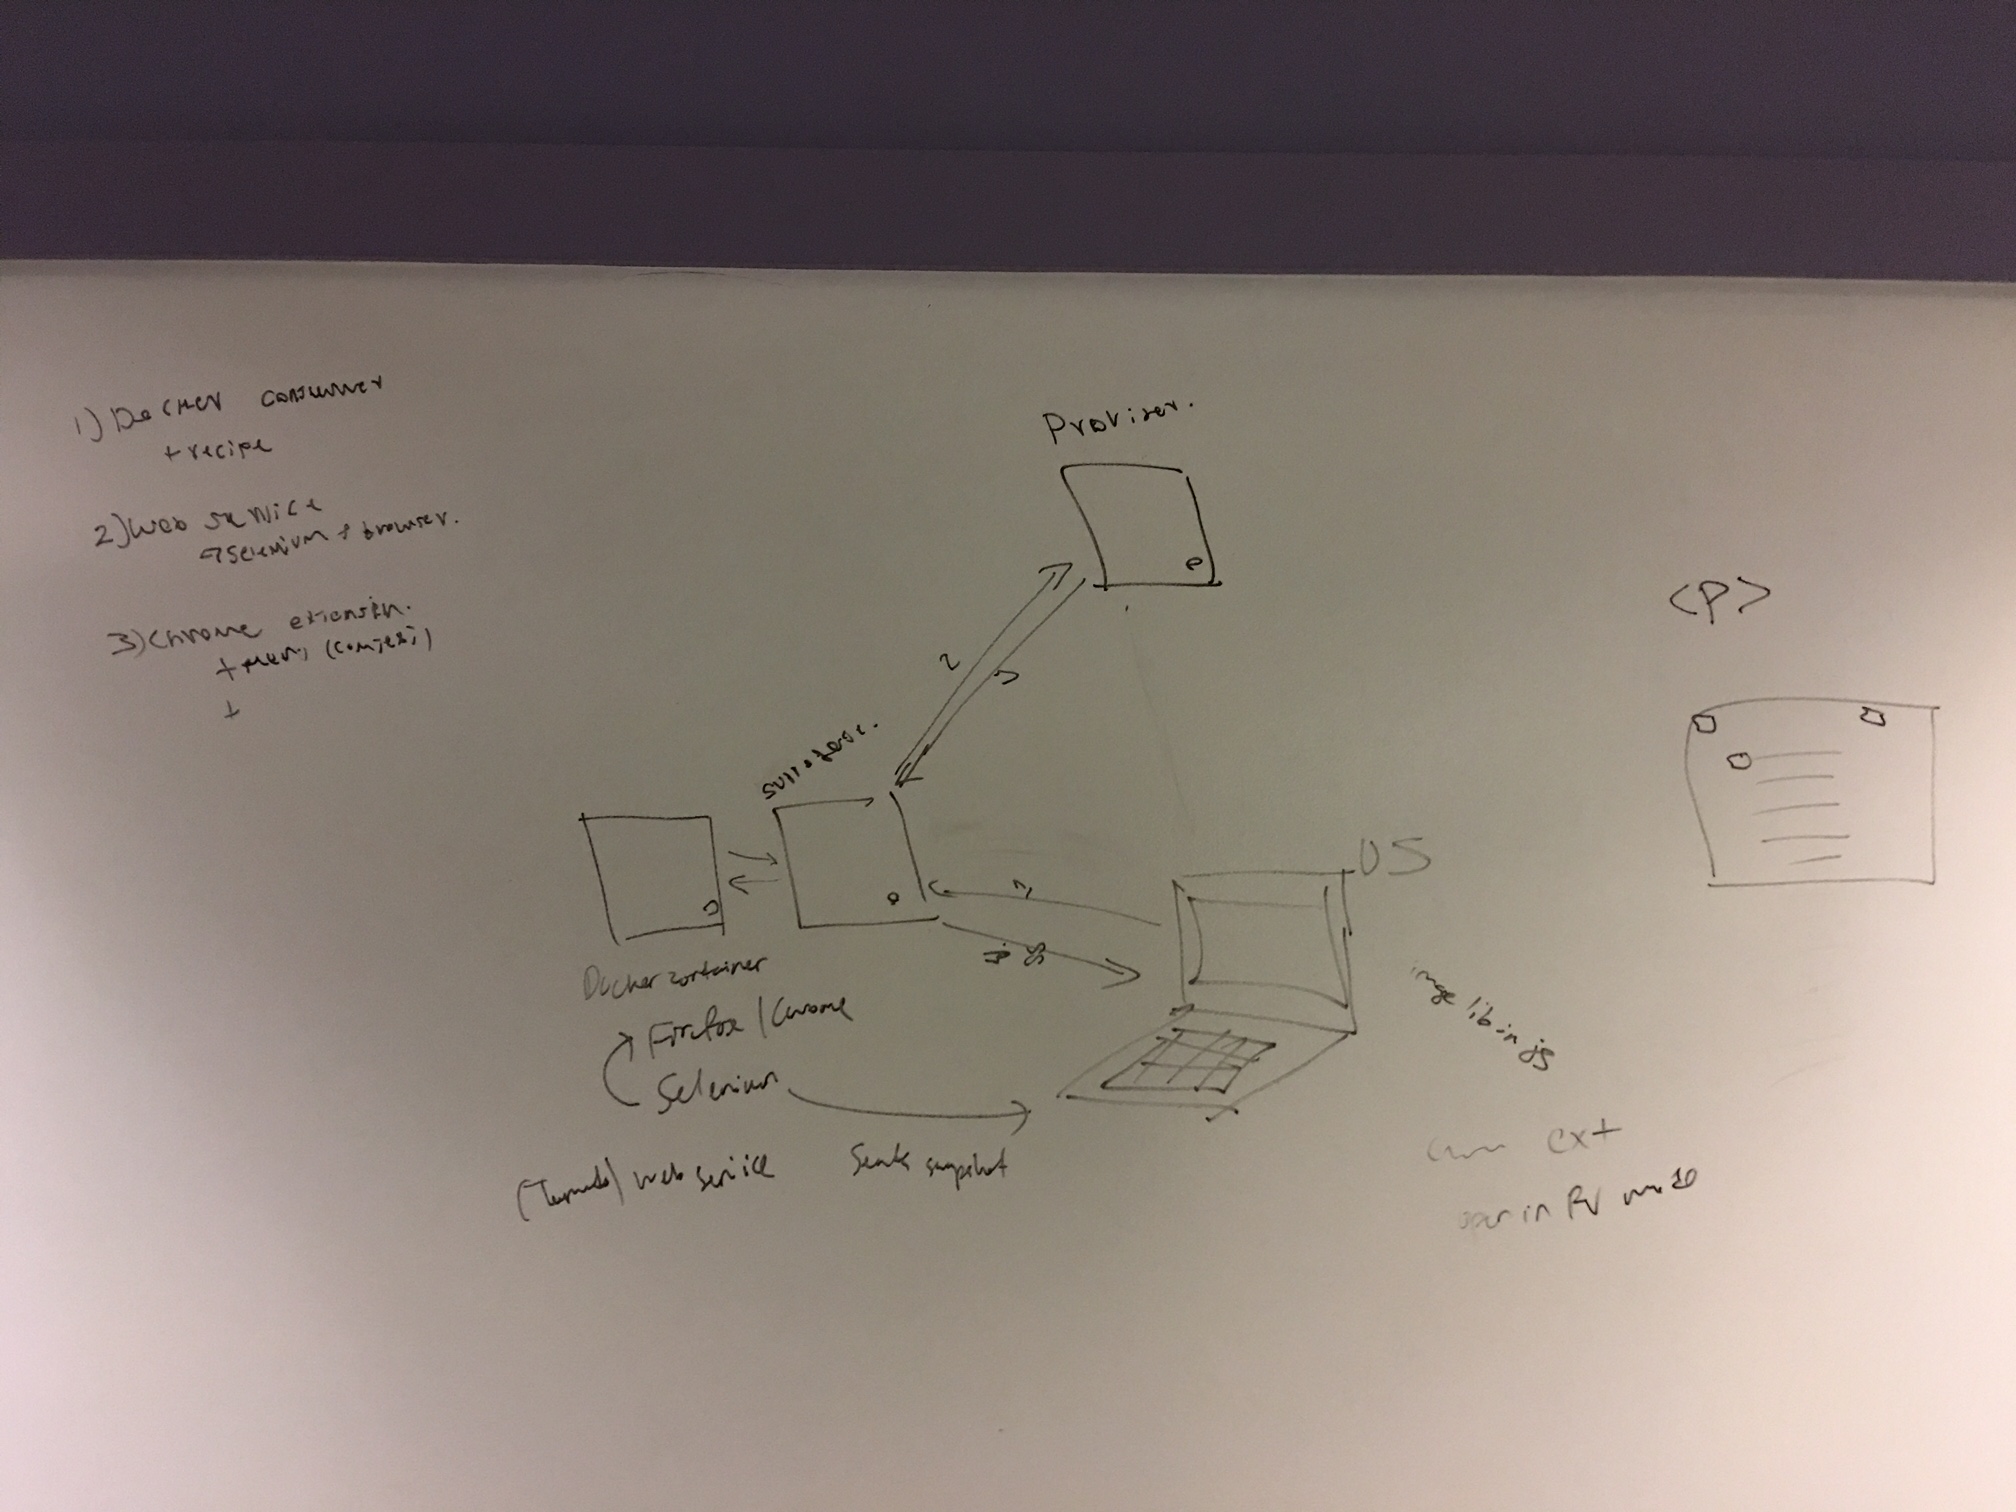 1) Docker container
+ recipe
2) Web service
→ Selenium + browser.
3) Chrome extension.
+ menu (context)
+
Provider.
2
surrogate.
US
<P>
Docker container
Firefox / Chrome
Selenium
(Tornado) web service
Sends snapshot
image lib in js
ext
open in PV mode